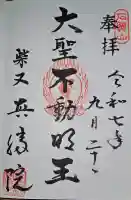 奉拝
令和七年
九月二十
大聖不動明王
柴又
真勝院